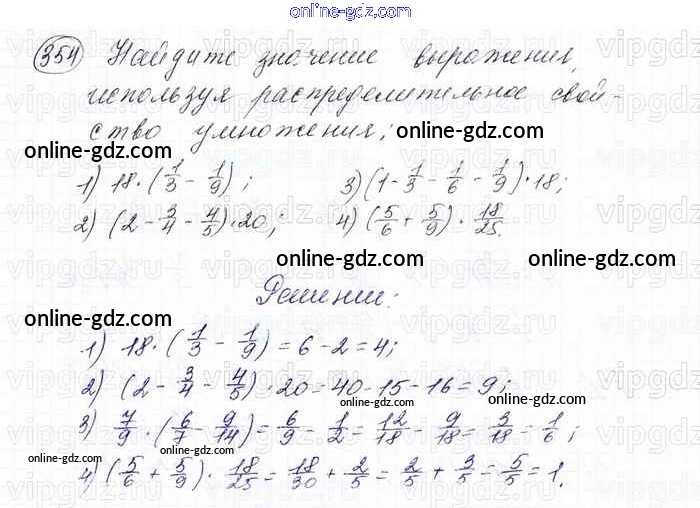 online-gdz.com
354 Найдите значение выражения,
используя распределительное свой-
ство умножения:
online-gdz.com
online-gdz.com
1) 18·(1/3 - 1/9); 3) (1 - 1/3 - 1/6 - 1/9)·18;
2) (2 - 3/4 - 4/5)·20; 4) (5/6 + 5/9)·18/25.
online-gdz.com
online-gdz.com
online-gdz.com
Решение:
online-gdz.com
1) 18·(1/3 - 1/9) = 6 - 2 = 4;
2) (2 - 3/4 - 4/5)·20 = 40 - 15 - 16 = 9;
online-gdz.com
3) 7/9·(6/7 - 9/14) = 6/9 - 1/2 = 12/18 - 9/18 = 3/18 = 1/6;
online-gdz.com
online-gdz.com
4) (5/6 + 5/9)·18/25 = 18/30 + 2/5 = 2/5 + 3/5 = 5/5 = 1.
online-gdz.com